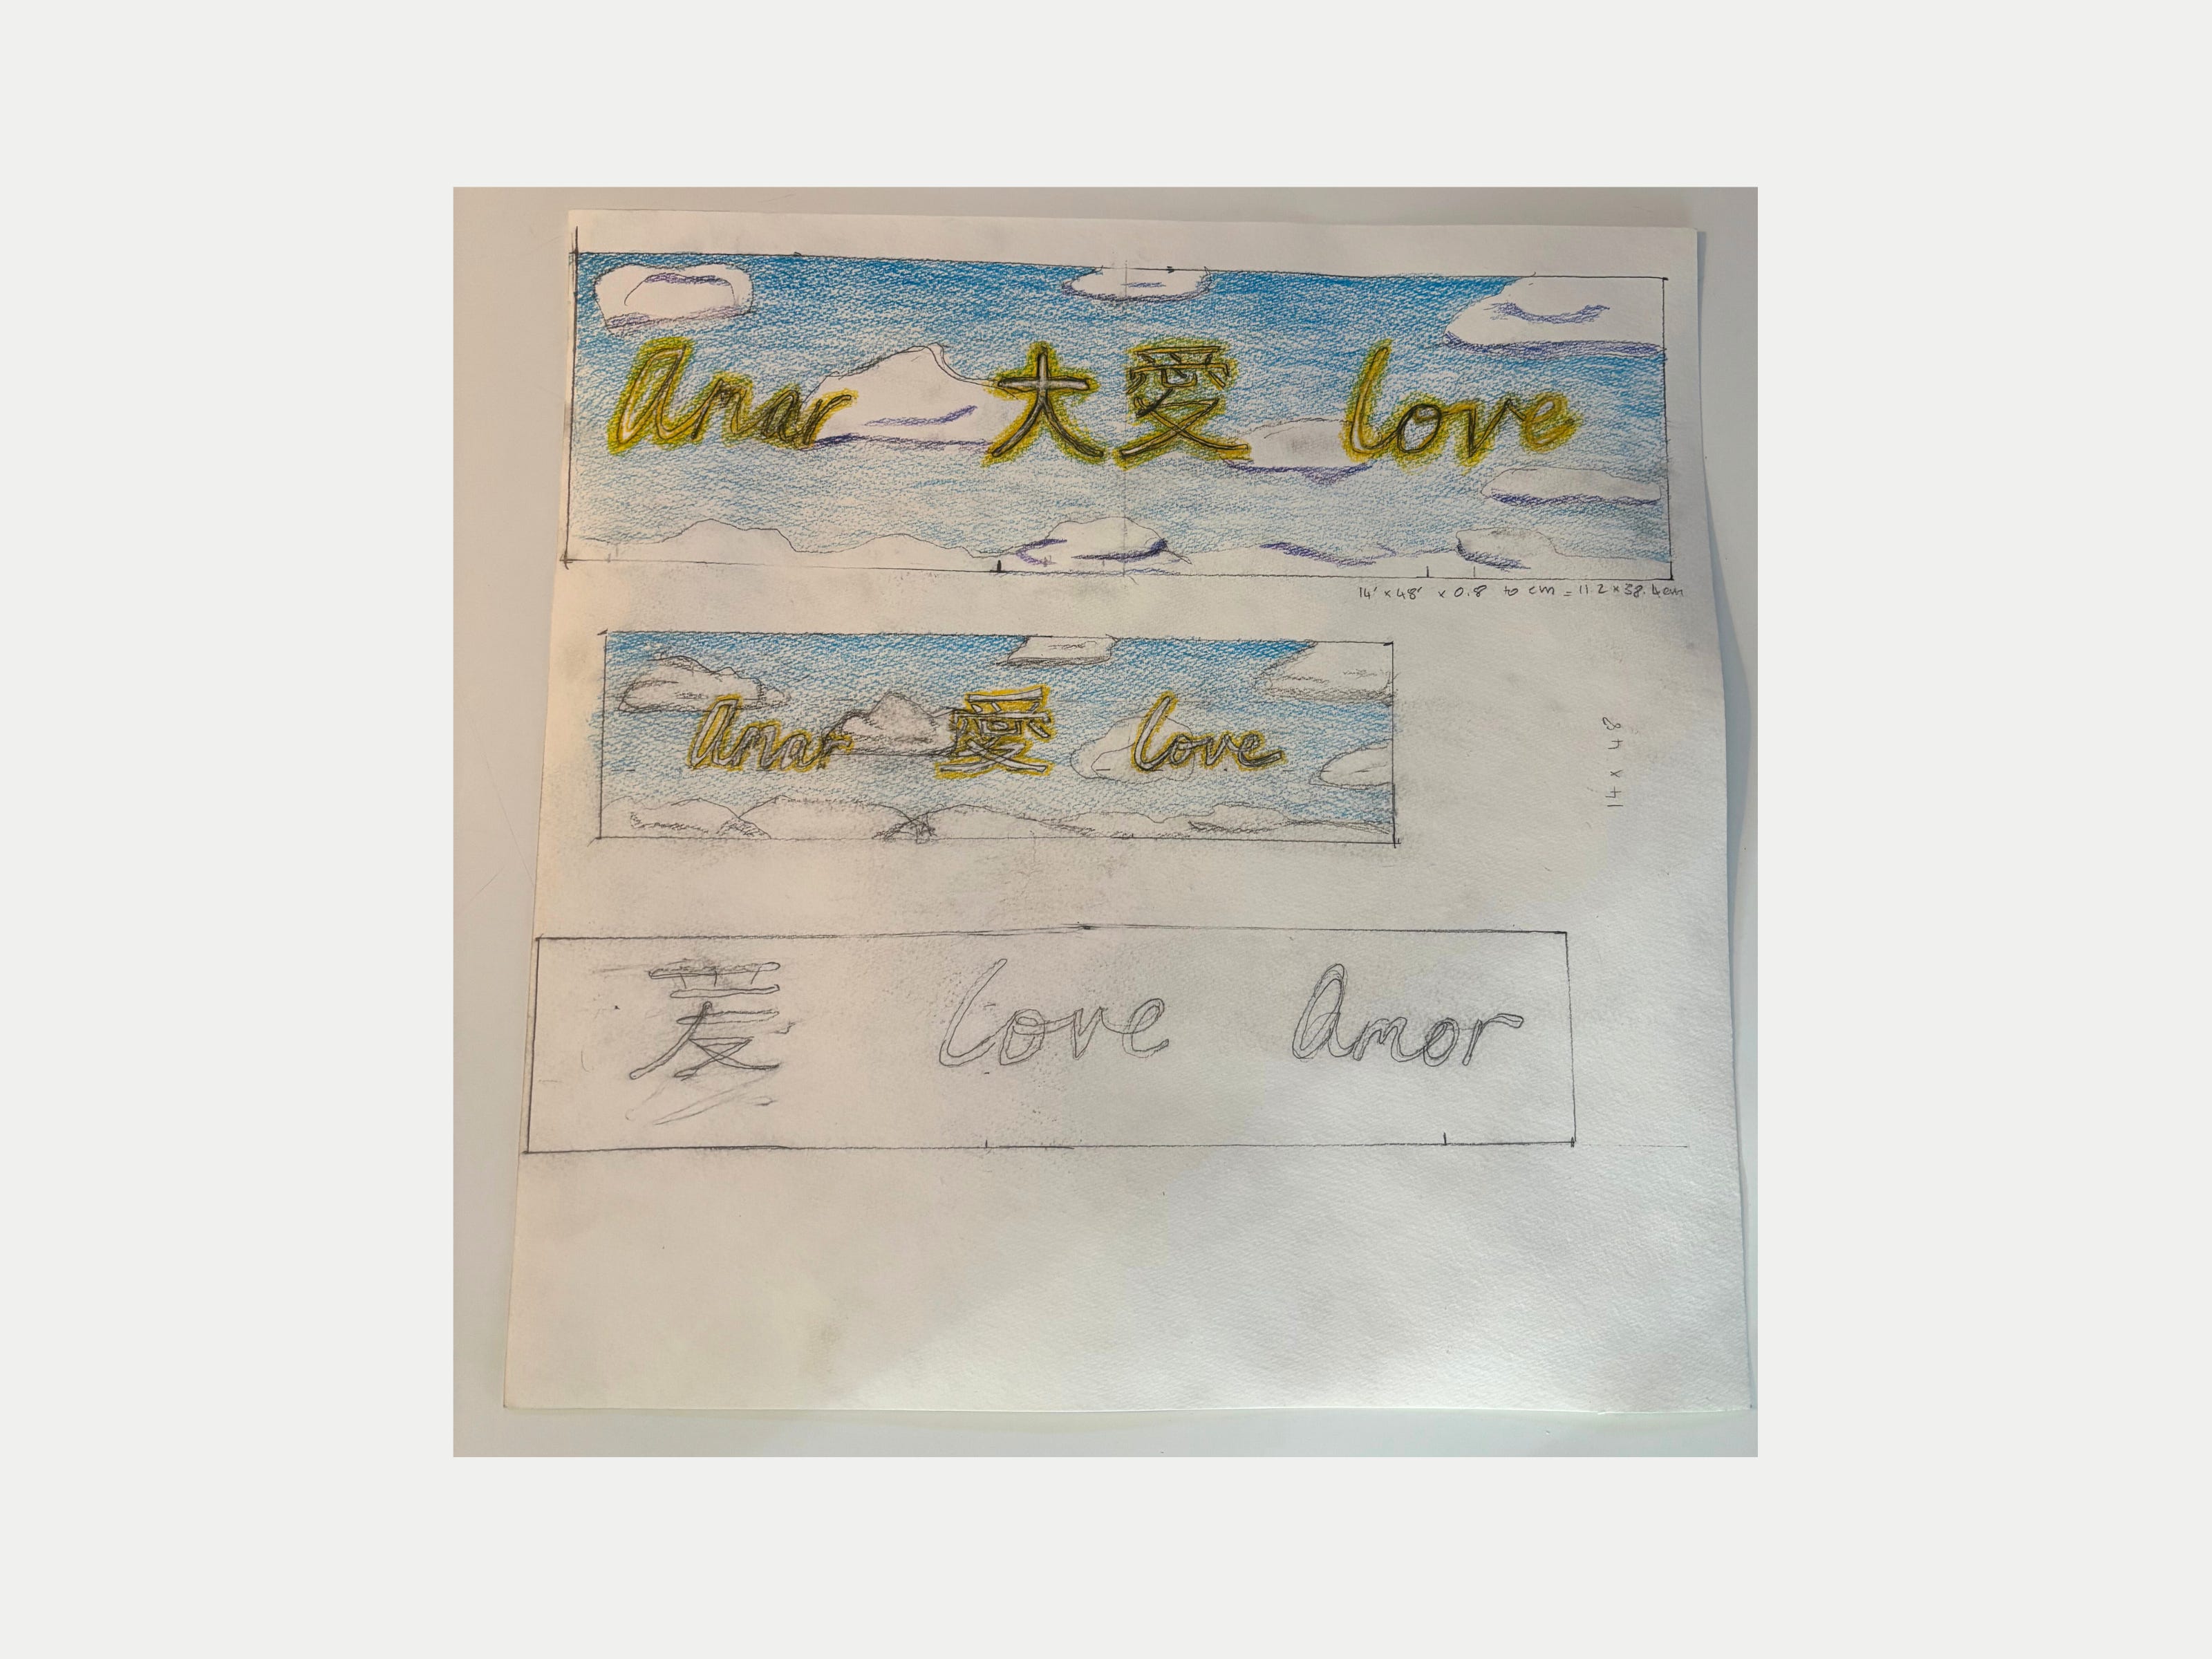 amar 大愛 love
14' x 48' x 0.8 to cm = 11.2 x 38.4cm
amar 愛 love
14 x 48
爱 love amor